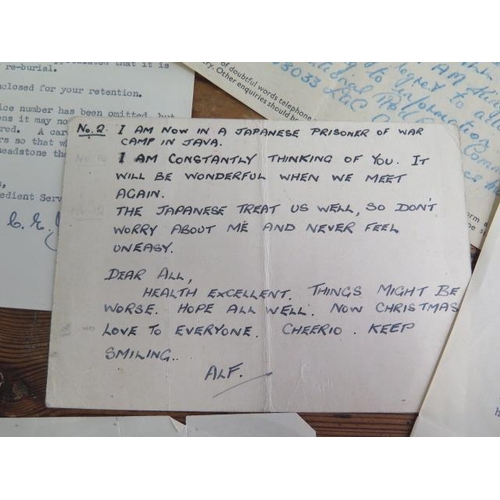 re-burial.
closed for your retention.
ice number has been omitted, but
ons it may now
red. A care
ers so that w
headstone the
edient Serv
of doubtful words telephone
ry. Other enquiries should be
8033
No. 2. I AM NOW IN A JAPANESE PRISONER OF WAR
CAMP IN JAVA.
I AM CONSTANTLY THINKING OF YOU. IT
WILL BE WONDERFUL WHEN WE MEET
AGAIN.
THE JAPANESE TREAT US WELL, SO DON'T
WORRY ABOUT ME AND NEVER FEEL
UNEASY.
DEAR ALL,
HEALTH EXCELLENT. THINGS MIGHT BE
WORSE. HOPE ALL WELL. NOW CHRISTMAS
LOVE TO EVERYONE. CHEERIO. KEEP
SMILING..
ALF.